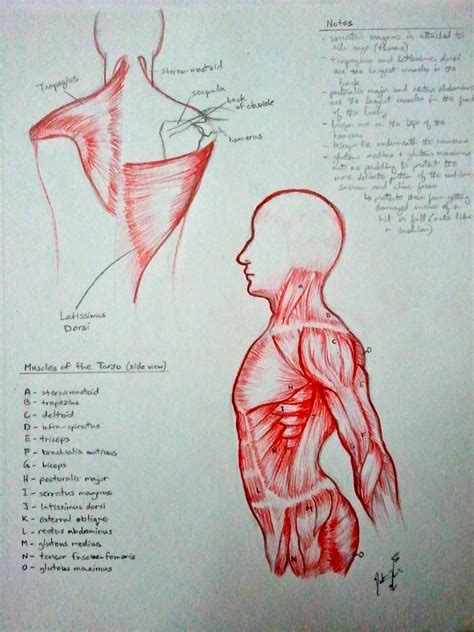 Notes
- serratus magnus is attached to
rib cage (thorax)
- trapezius and latissimus dorsi
are the largest muscles in the
- pectoralis major and rectus abdominus
are the largest muscles in the
of the body
- biceps are on the top of the
humerus
- triceps lie underneath the humerus
- gluteus medius + gluteus maximus
act as padding to protect the
more delicate
to protects them from getting
damaged
hit or fall (acts like
a cushion)
Trapezius
sterno-mastoid
scapula
back
of clavicle
humerus
Latissimus
Dorsi
Muscles of the Torso (side view)
A - sternomastoid
B - trapezius
C - deltoid
D - infra-spinatus
E - triceps
F - brachialis anticus
G - biceps
H - pectoralis major
I - serratus magnus
J - latissimus dorsi
K - external oblique
L - rectus abdominus
M - gluteus medius
N - tensor fasciae-femoris
O - gluteus maximus
A
B
C
D
H
I